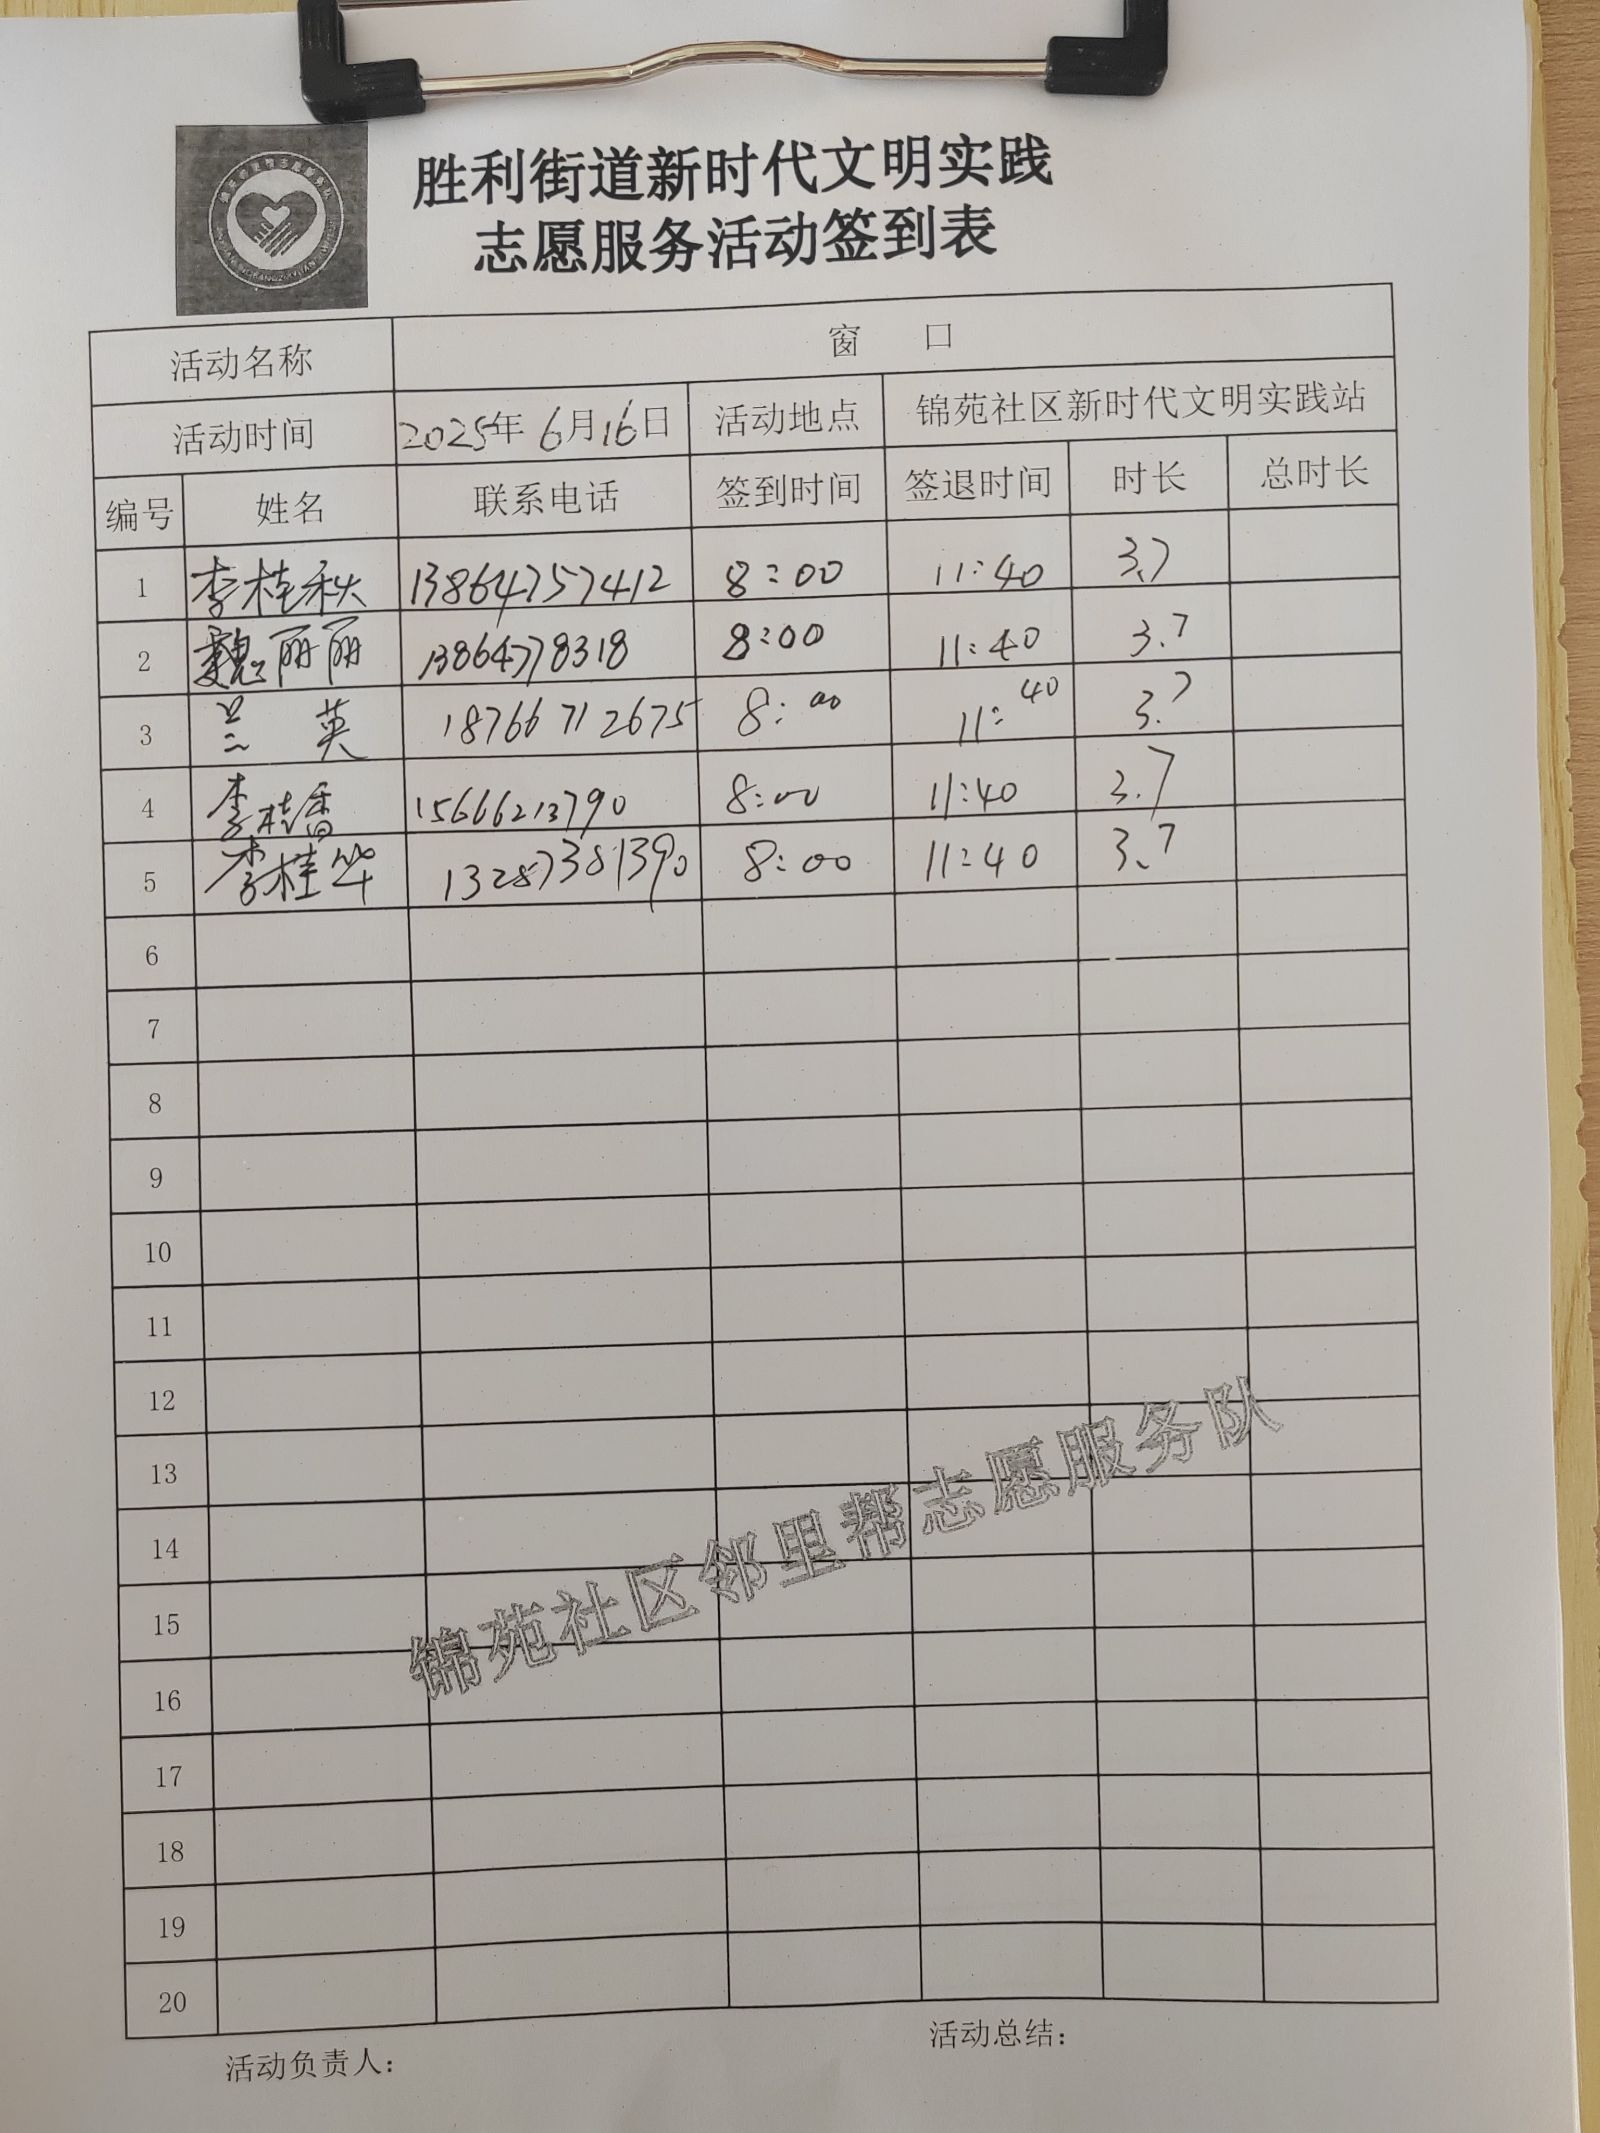 胜利街道新时代文明实践
志愿服务活动签到表
活动名称 窗 口
活动时间 2025年 6月16日 活动地点 锦苑社区新时代文明实践站
编号 姓名 联系电话 签到时间 签退时间 时长 总时长
1 李桂秋 13864757412 8:00 11:40 3.7
2 魏丽丽 13864778318 8:00 11:40 3.7
3 兰英 18766712675 8:00 11:40 3.7
4 李桂香 15666213790 8:00 11:40 3.7
5 李桂华 13287381390 8:00 11:40 3.7
6
7
8
9
10
11
12
13
14
15
16
17
18
19
20
锦苑社区邻里帮志愿服务队
活动负责人: 活动总结: